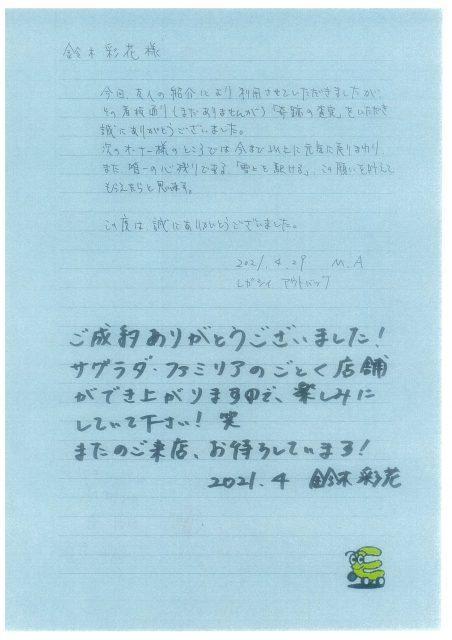 鈴木彩花様
今回、友人の紹介により利用させていただきましたが、
その看板通り(まだありませんが)「奇跡の査定」をいただき
誠にありがとうございました。
次のオーナー様のところでは今まで以上に元気に走りまわり
また唯一の心残りである「雪上を駆ける」、この願いを叶えて
もらえたらと思います。
この度は、誠にありがとうございました。
2021.4.29 M.A
レガシィ アウトバック
ご成約ありがとうございました!
サグラダ・ファミリアのごとく店舗
ができ上がりますので、楽しみに
していて下さい! 笑
またのご来店、お待ちしています!
2021.4 鈴木彩花